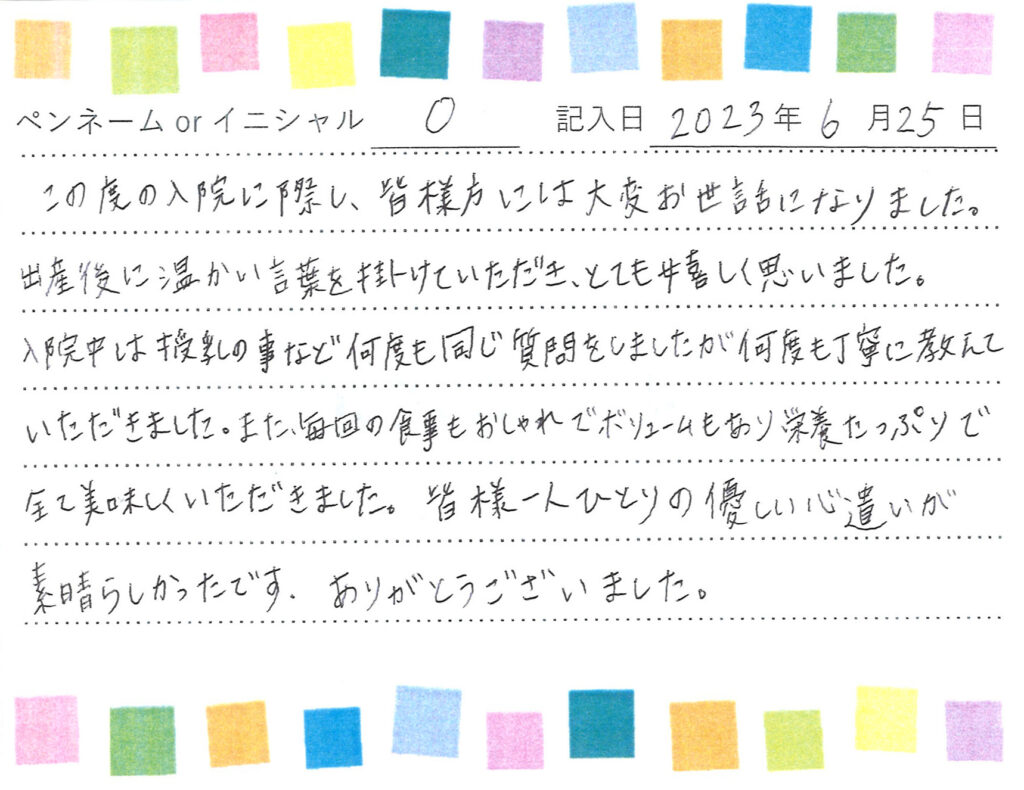 ペンネーム or イニシャル O 記入日 2023年 6 月25日
この度の入院に際し、皆様方には大変お世話になりました。
出産後に温かい言葉を掛けていただき、とても嬉しく思いました。
入院中は授乳の事など何度も同じ質問をしましたが何度も丁寧に教えて
いただきました。また、毎回の食事もおしゃれでボリュームもあり栄養たっぷりで
全て美味しくいただきました。皆様一人ひとりの優しい心遣いが
素晴らしかったです. ありがとうございました。